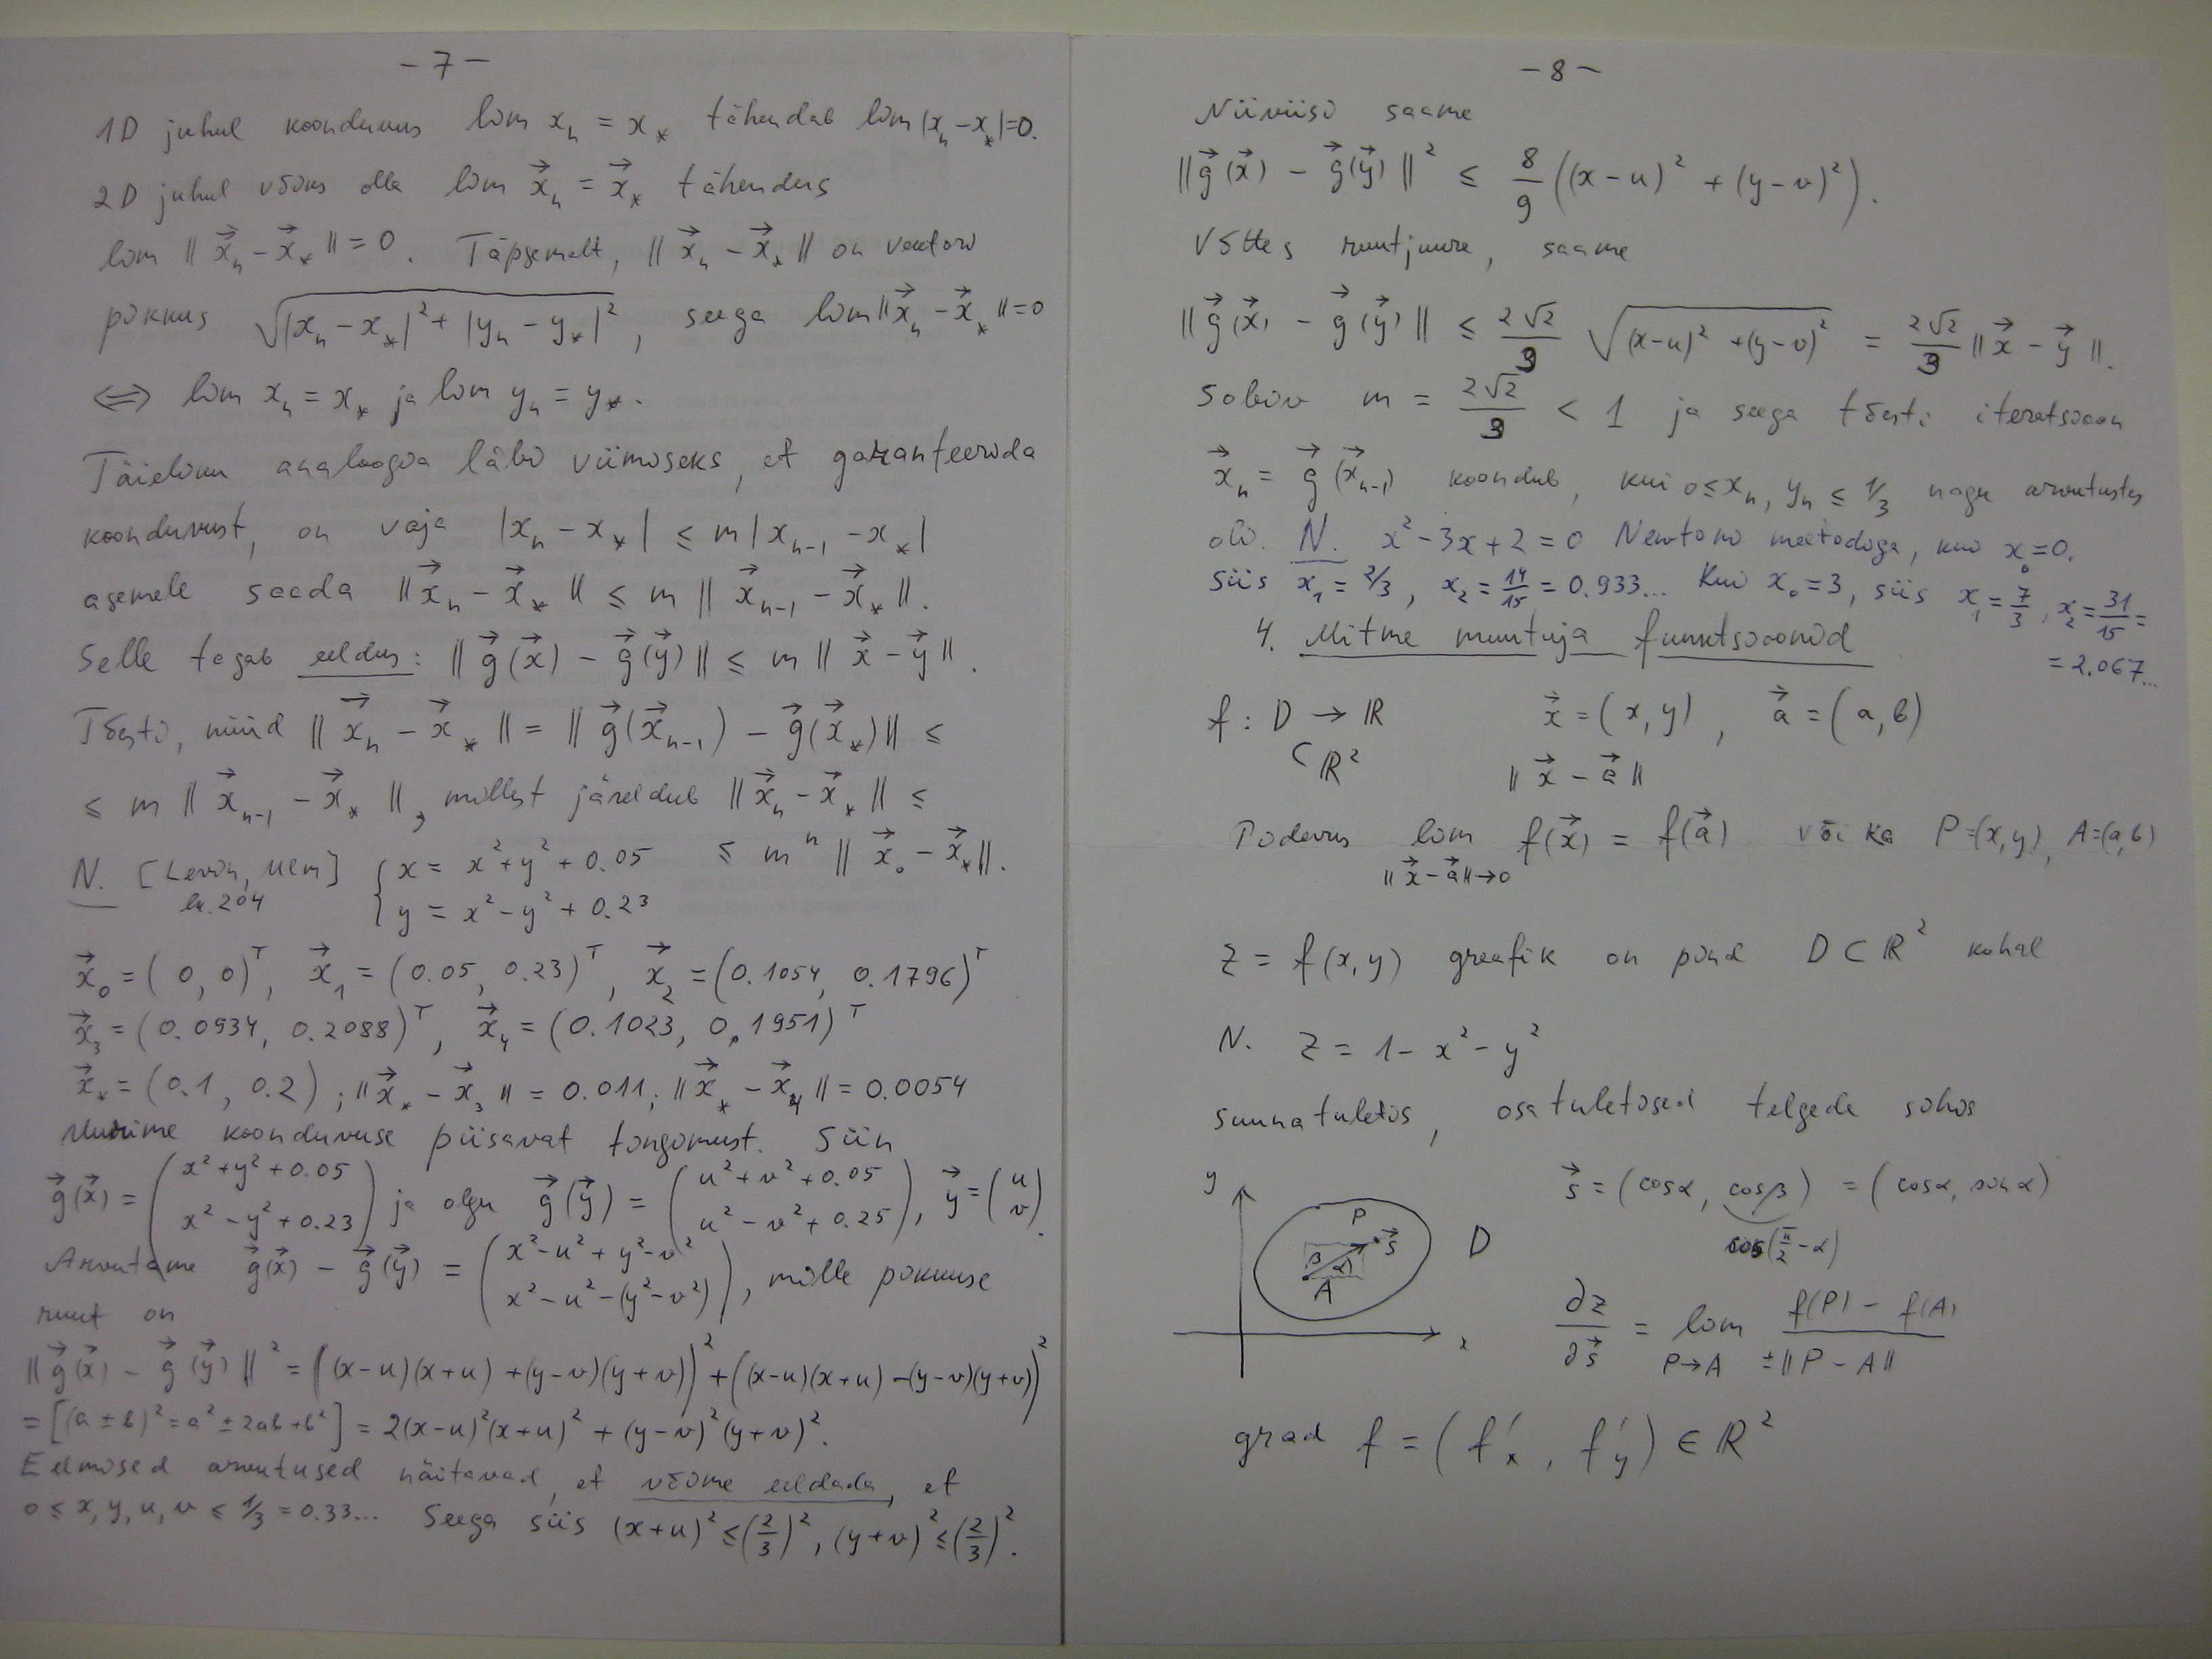 - 7 -
1D juhul koonduvus lim xₙ = x⁎ tähendab lim |xₙ - x⁎| = 0.
2D juhul võiks olla lim x⃗ₙ = x⃗⁎ tähendus
lim ‖x⃗ₙ - x⃗⁎‖ = 0. Täpsemalt, ‖x⃗ₙ - x⃗⁎‖ on vektori
pikkus √(|xₙ - x⁎|² + |yₙ - y⁎|²), seega lim ‖x⃗ₙ - x⃗⁎‖ = 0
⟺ lim xₙ = x⁎ ja lim yₙ = y⁎.
Täieliku analoogia läbi viimiseks, et garanteerida
koonduvust, on vaja |xₙ - x⁎| ≤ m |xₙ₋₁ - x⁎|
asemele saada ‖x⃗ₙ - x⃗⁎‖ ≤ m ‖x⃗ₙ₋₁ - x⃗⁎‖.
Selle tagab eeldus: ‖g⃗(x⃗) - g⃗(y⃗)‖ ≤ m ‖x⃗ - y⃗‖.
Tõesti, nüüd ‖x⃗ₙ - x⃗⁎‖ = ‖g⃗(x⃗ₙ₋₁) - g⃗(x⃗⁎)‖ ≤
≤ m ‖x⃗ₙ₋₁ - x⃗⁎‖, millest järeldub ‖x⃗ₙ - x⃗⁎‖ ≤
≤ mⁿ ‖x⃗₀ - x⃗⁎‖.
N. [Levin, Ulm] lk. 204 { x = x² + y² + 0.05
y = x² - y² + 0.23
x⃗₀ = (0, 0)ᵀ, x⃗₁ = (0.05, 0.23)ᵀ, x⃗₂ = (0.1054, 0.1796)ᵀ
x⃗₃ = (0.0934, 0.2088)ᵀ, x⃗₄ = (0.1023, 0.1951)ᵀ
x⃗⁎ = (0.1, 0.2); ‖x⃗⁎ - x⃗₃‖ = 0.011; ‖x⃗⁎ - x⃗₄‖ = 0.0054
Uurime koonduvuse piisavat tingimust. Siin
g⃗(x⃗) = (x² + y² + 0.05; x² - y² + 0.23) ja olgu g⃗(y⃗) = (u² + v² + 0.05; u² - v² + 0.25), y⃗ = (u; v).
Arvutame g⃗(x⃗) - g⃗(y⃗) = (x² - u² + y² - v²; x² - u² - (y² - v²)), mille pikkuse
ruut on
‖g⃗(x⃗) - g⃗(y⃗)‖² = ((x-u)(x+u) + (y-v)(y+v))² + ((x-u)(x+u) - (y-v)(y+v))²
= [(a ± b)² = a² ± 2ab + b²] = 2(x-u)²(x+u)² + (y-v)²(y+v)².
Eelmised arvutused näitavad, et võime eeldada, et
0 ≤ x, y, u, v ≤ 1/3 = 0.33... Seega siis (x+u)² ≤ (2/3)², (y+v)² ≤ (2/3)².
- 8 -
Niiviisi saame
‖g⃗(x⃗) - g⃗(y⃗)‖² ≤ 8/9 ((x-u)² + (y-v)²).
Võttes ruutjuure, saame
‖g⃗(x⃗) - g⃗(y⃗)‖ ≤ 2√2/3 √((x-u)² + (y-v)²) = 2√2/3 ‖x⃗ - y⃗‖.
Sobiv m = 2√2/3 < 1 ja seega tõesti iteratsioon
x⃗ₙ = g⃗(x⃗ₙ₋₁) koondub, kui 0 ≤ xₙ, yₙ ≤ 1/3 nagu arvutustes
oli. N. x² - 3x + 2 = 0 Newtoni meetodiga, kui x₀ = 0.
siis x₁ = 2/3, x₂ = 14/15 = 0.933... Kui x₀ = 3, siis x₁ = 7/3, x₂ = 31/15 =
= 2.067...
4. Mitme muutuja funktsioonid
f : D → ℝ x⃗ = (x, y), a⃗ = (a, b)
⊂ ℝ² ‖x⃗ - a⃗‖
Pidevus lim f(x⃗) = f(a⃗) või ka P = (x, y), A = (a, b)
‖x⃗ - a⃗‖ → 0
z = f(x, y) graafik on pind D ⊂ ℝ² kohal
N. z = 1 - x² - y²
suunatuletis, osatuletised telgede sihis
s⃗ = (cos α, cos β) = (cos α, sin α)
cos(π/2 - α)
y
P
s⃗
β
α
A
D
x
∂z/∂s⃗ = lim P→A (f(P) - f(A)) / ±‖P - A‖
grad f = (f'ₓ, f'y) ∈ ℝ²